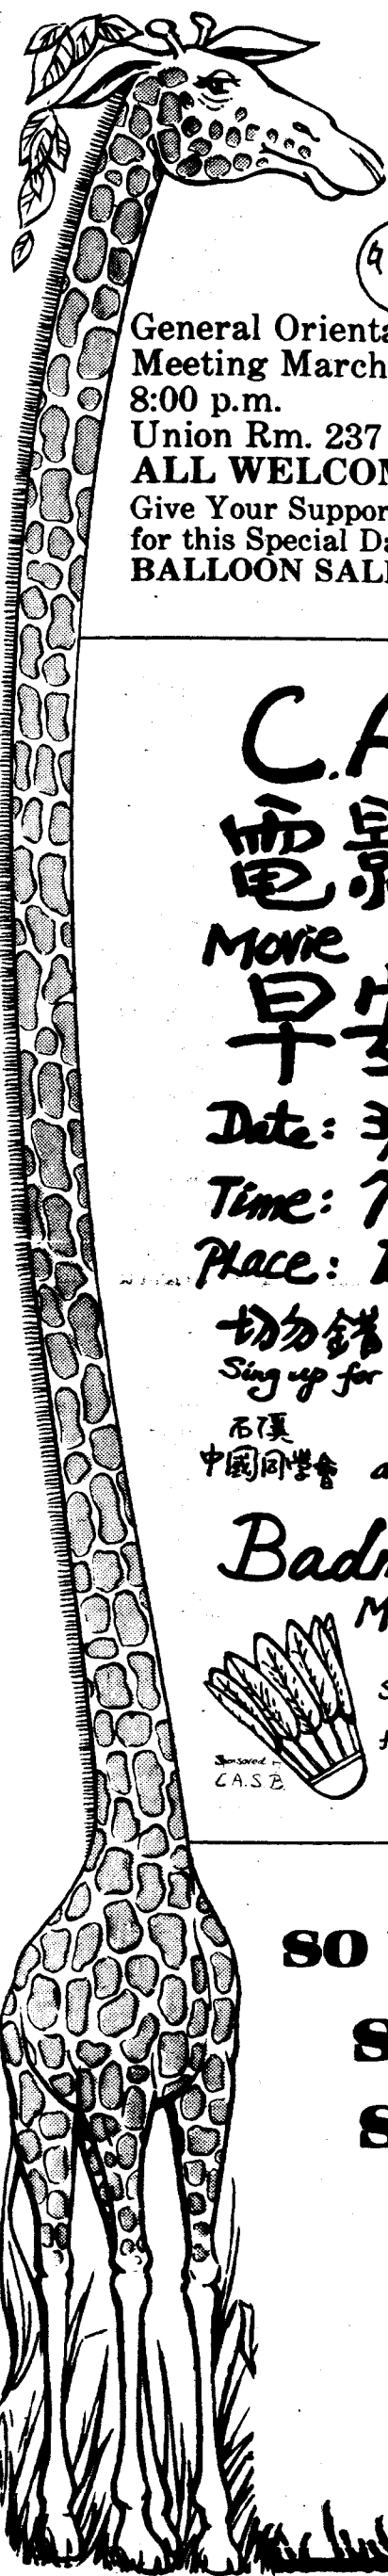 General Orienta
Meeting March
8:00 p.m.
Union Rm. 237
ALL WELCOM
Give Your Suppor
for this Special Da
BALLOON SAL
C.A
電影
Movie
早安
Date: 3/
Time: 7
Place:
切勿錯
Sing up for
石溪
中國同學會 a
Badm
M
S
Sponsored
C.A.S.B.
SO
S
S